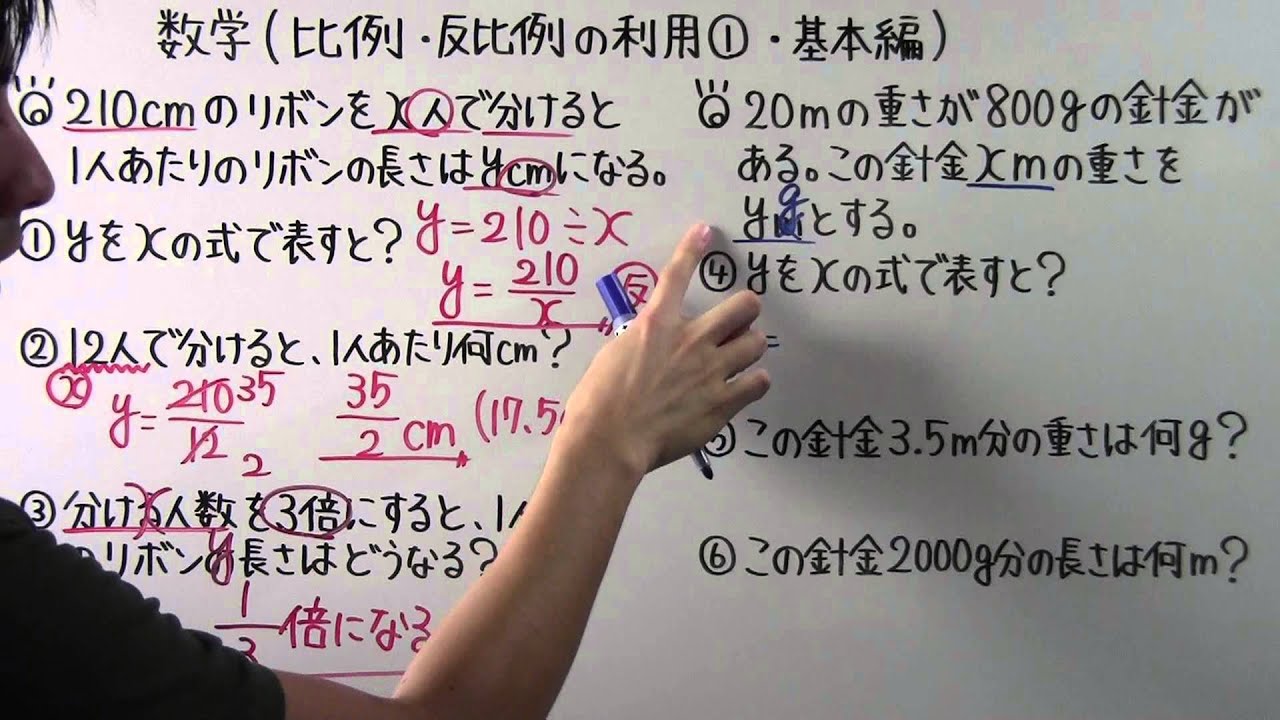 数学(比例・反比例の利用①・基本編)
210cmのリボンをx人で分けると
1人あたりのリボンの長さはycmになる。
①yをxの式で表すと?
y=210÷x
y=210/x
反
②12人で分けると、1人あたり何cm?
x
y=210/12
35
2
35/2 cm
(17.5
③分ける人数を3倍にすると、1
x
リボンの長さはどうなる?
y
1/3倍になる
20mの重さが800gの針金が
ある。この針金xmの重さを
ygとする。
④yをxの式で表すと?
=
この針金3.5m分の重さは何g?
⑥この針金2000g分の長さは何m?